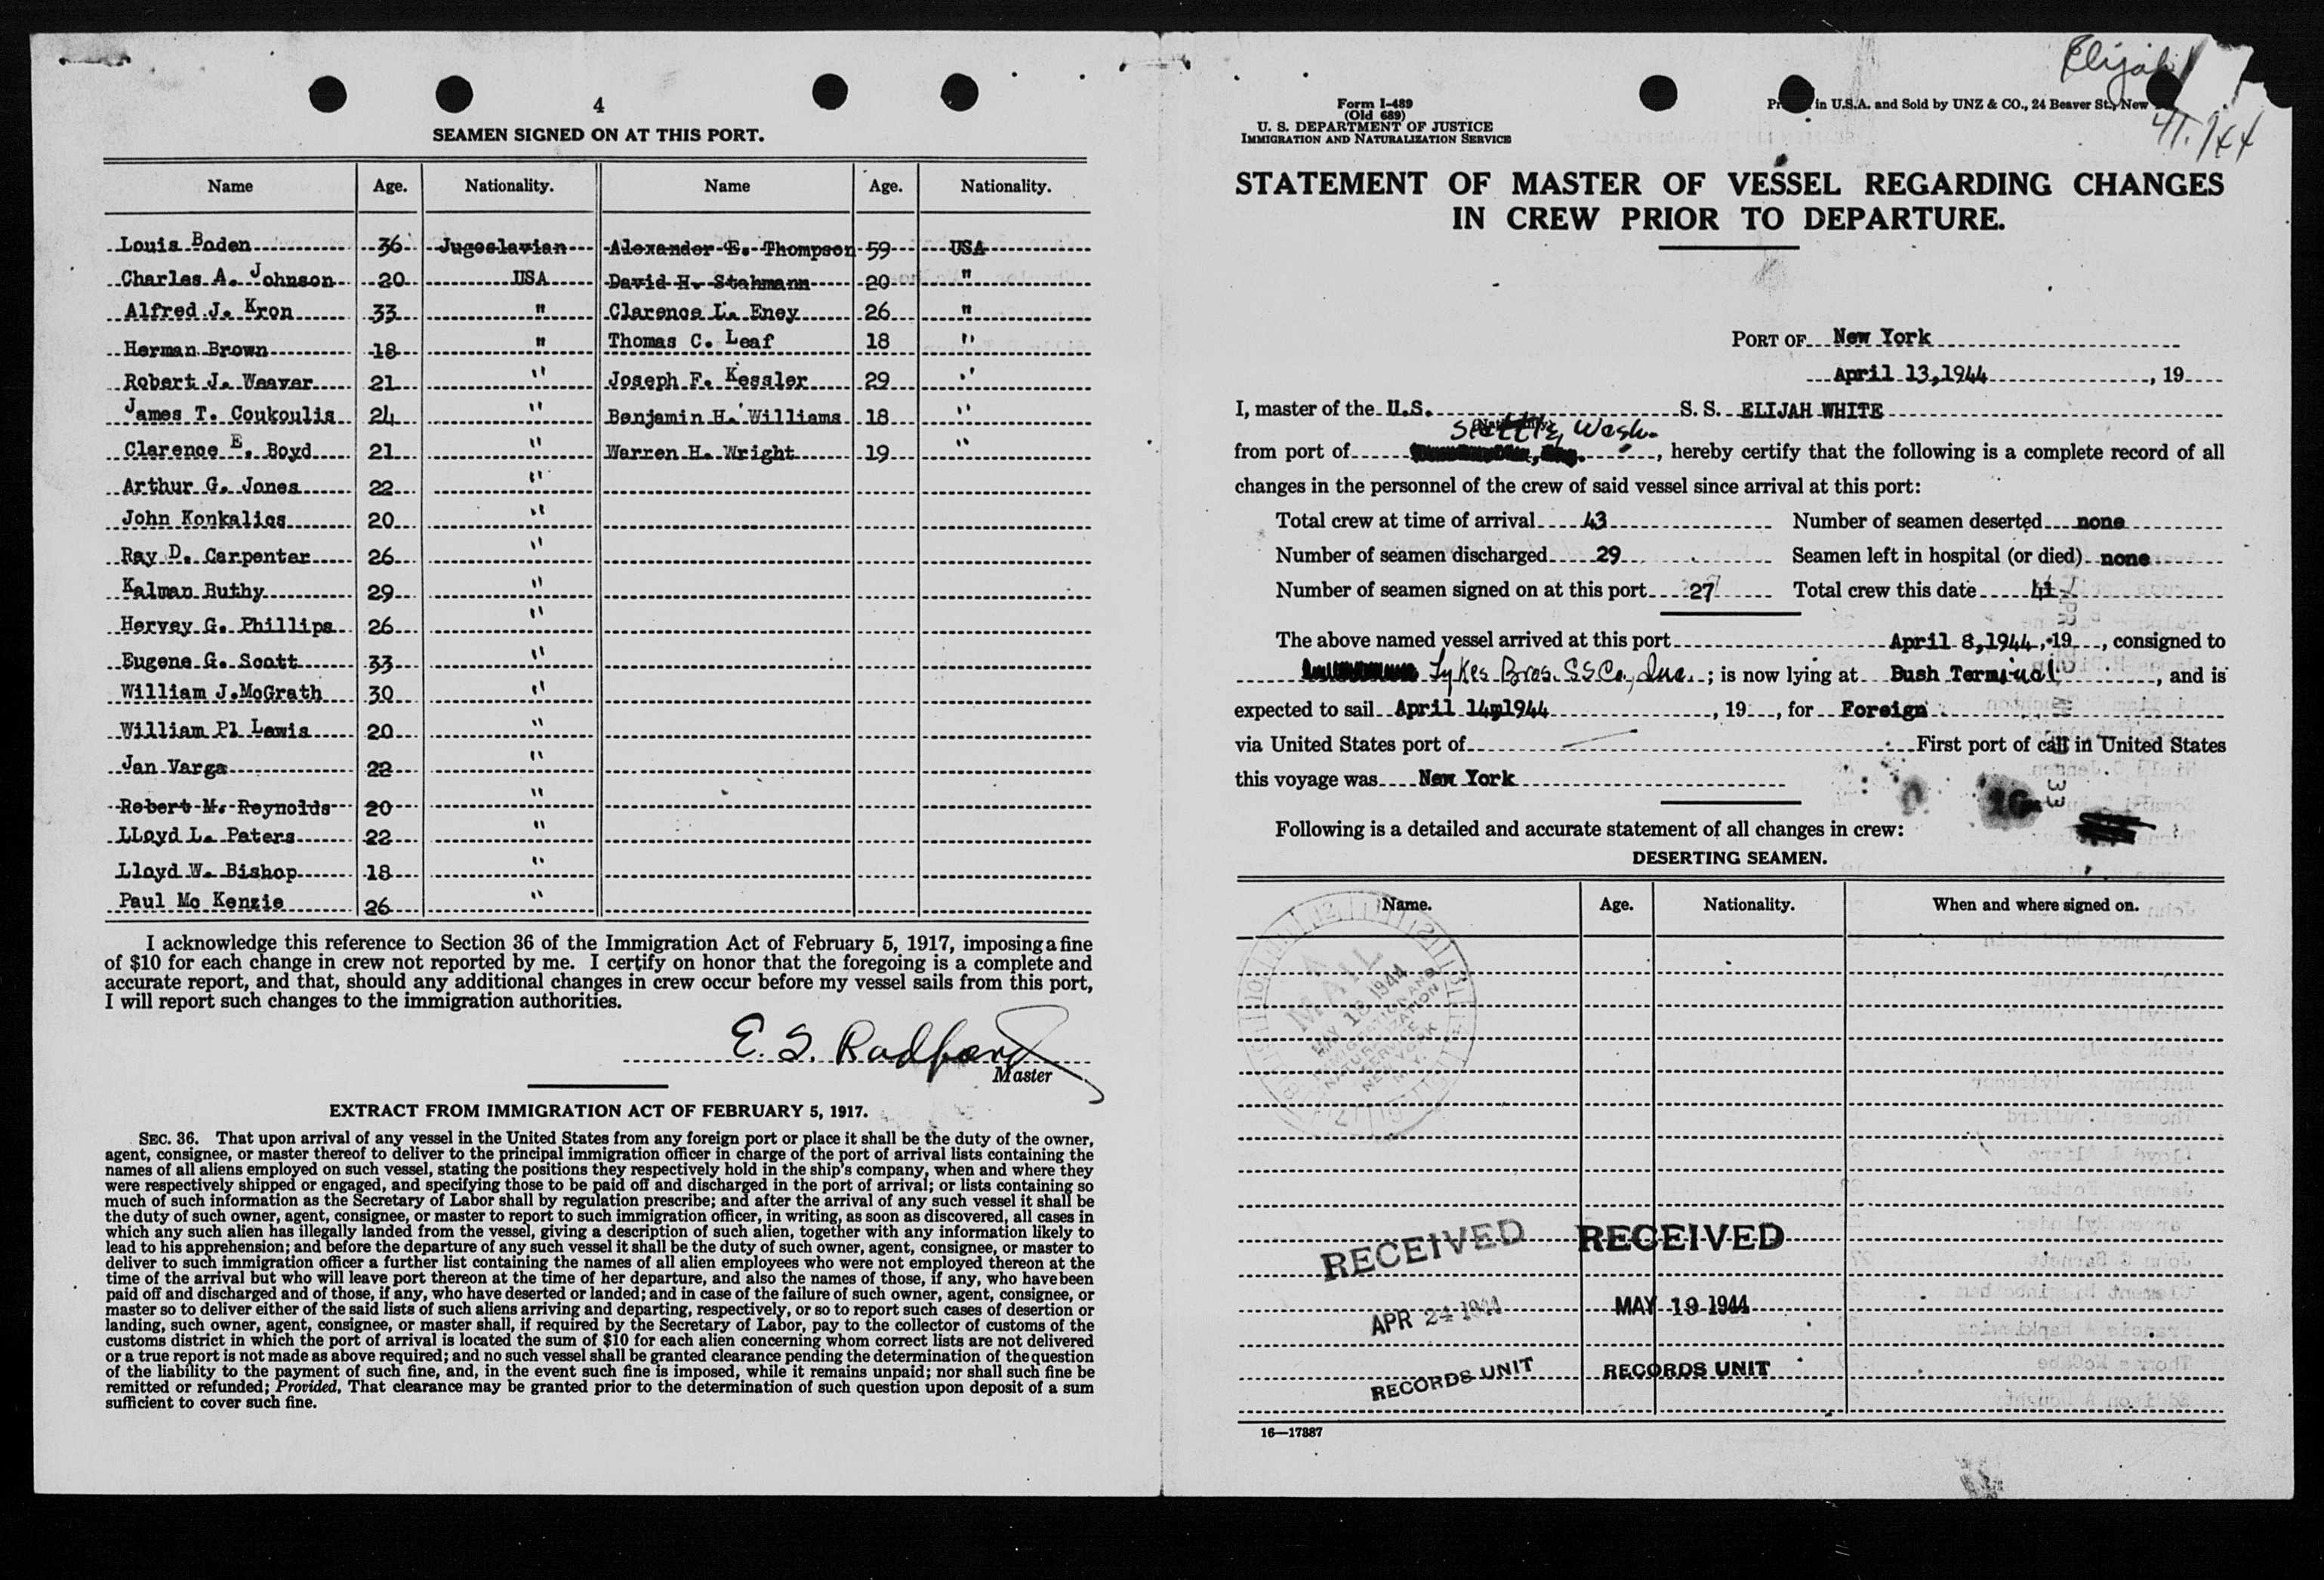 4
SEAMEN SIGNED ON AT THIS PORT.
Name Age. Nationality. Name Age. Nationality.
Louis Boden 36 Jugoslavian Alexander E. Thompson 59 USA
Charles A. Johnson 20 USA David H. Stahmann 20 "
Alfred J. Kron 33 " Clarence L. Eney 26 "
Herman Brown 18 " Thomas C. Leaf 18 "
Robert J. Weaver 21 " Joseph F. Kessler 29 "
James T. Coukoulis 24 " Benjamin H. Williams 18 "
Clarence E. Boyd 21 " Warren H. Wright 19 "
Arthur G. Jones 22 "
John Konkalics 20 "
Ray D. Carpenter 26 "
Kalman Ruthy 29 "
Hervey G. Phillips 26 "
Eugene G. Scott 33 "
William J.McGrath 30 "
William Pl Lewis 20 "
Jan Varga 22 "
Robert M. Reynolds 20 "
LLoyd L. Peters 22 "
Lloyd W. Bishop 18 "
Paul Mc Kenzie 26 "
I acknowledge this reference to Section 36 of the Immigration Act of February 5, 1917, imposing a fine
of $10 for each change in crew not reported by me. I certify on honor that the foregoing is a complete and
accurate report, and that, should any additional changes in crew occur before my vessel sails from this port,
I will report such changes to the immigration authorities.
E. S. Radford
Master
EXTRACT FROM IMMIGRATION ACT OF FEBRUARY 5, 1917.
SEC. 36. That upon arrival of any vessel in the United States from any foreign port or place it shall be the duty of the owner,
agent, consignee, or master thereof to deliver to the principal immigration officer in charge of the port of arrival lists containing the
names of all aliens employed on such vessel, stating the positions they respectively hold in the ship's company, when and where they
were respectively shipped or engaged, and specifying those to be paid off and discharged in the port of arrival; or lists containing so
much of such information as the Secretary of Labor shall by regulation prescribe; and after the arrival of any such vessel it shall be
the duty of such owner, agent, consignee, or master to report to such immigration officer, in writing, as soon as discovered, all cases in
which any such alien has illegally landed from the vessel, giving a description of such alien, together with any information likely to
lead to his apprehension; and before the departure of any such vessel it shall be the duty of such owner, agent, consignee, or master to
deliver to such immigration officer a further list containing the names of all alien employees who were not employed thereon at the
time of the arrival but who will leave port thereon at the time of her departure, and also the names of those, if any, who have been
paid off and discharged and of those, if any, who have deserted or landed; and in case of the failure of such owner, agent, consignee, or
master so to deliver either of the said lists of such aliens arriving and departing, respectively, or so to report such cases of desertion or
landing, such owner, agent, consignee, or master shall, if required by the Secretary of Labor, pay to the collector of customs of the
customs district in which the port of arrival is located the sum of $10 for each alien concerning whom correct lists are not delivered
or a true report is not made as above required; and no such vessel shall be granted clearance pending the determination of the question
of the liability to the payment of such fine, and, in the event such fine is imposed, while it remains unpaid; nor shall such fine be
remitted or refunded; Provided, That clearance may be granted prior to the determination of such question upon deposit of a sum
sufficient to cover such fine.
Elijah
Form I-489
(Old 689)
U. S. DEPARTMENT OF JUSTICE
IMMIGRATION AND NATURALIZATION SERVICE
in U.S.A. and Sold by UNZ & CO., 24 Beaver St., New
STATEMENT OF MASTER OF VESSEL REGARDING CHANGES
IN CREW PRIOR TO DEPARTURE.
PORT OF New York
April 13,1944, 19
I, master of the U.S. S. S. ELIJAH WHITE
Seattle, Wash.
from port of , hereby certify that the following is a complete record of all
changes in the personnel of the crew of said vessel since arrival at this port:
Total crew at time of arrival 43 Number of seamen deserted none
Number of seamen discharged 29 Seamen left in hospital (or died) none
Number of seamen signed on at this port 27 Total crew this date 41
The above named vessel arrived at this port April 8,1944, 19 , consigned to
Lykes Bros. S.S. Co., Inc. ; is now lying at Bush Terminal , and is
expected to sail April 14,1944 , 19 , for Foreign
via United States port of First port of call in United States
this voyage was New York
33
Following is a detailed and accurate statement of all changes in crew:
DESERTING SEAMEN.
Name. Age. Nationality. When and where signed on.
MAIL
MAY 18 1944
IMMIGRATION AND
NATURALIZATION
SERVICE
NEW YORK
N. Y.
RECEIVED RECEIVED
APR 24 1944 MAY 19 1944
RECORDS UNIT RECORDS UNIT
16—17887